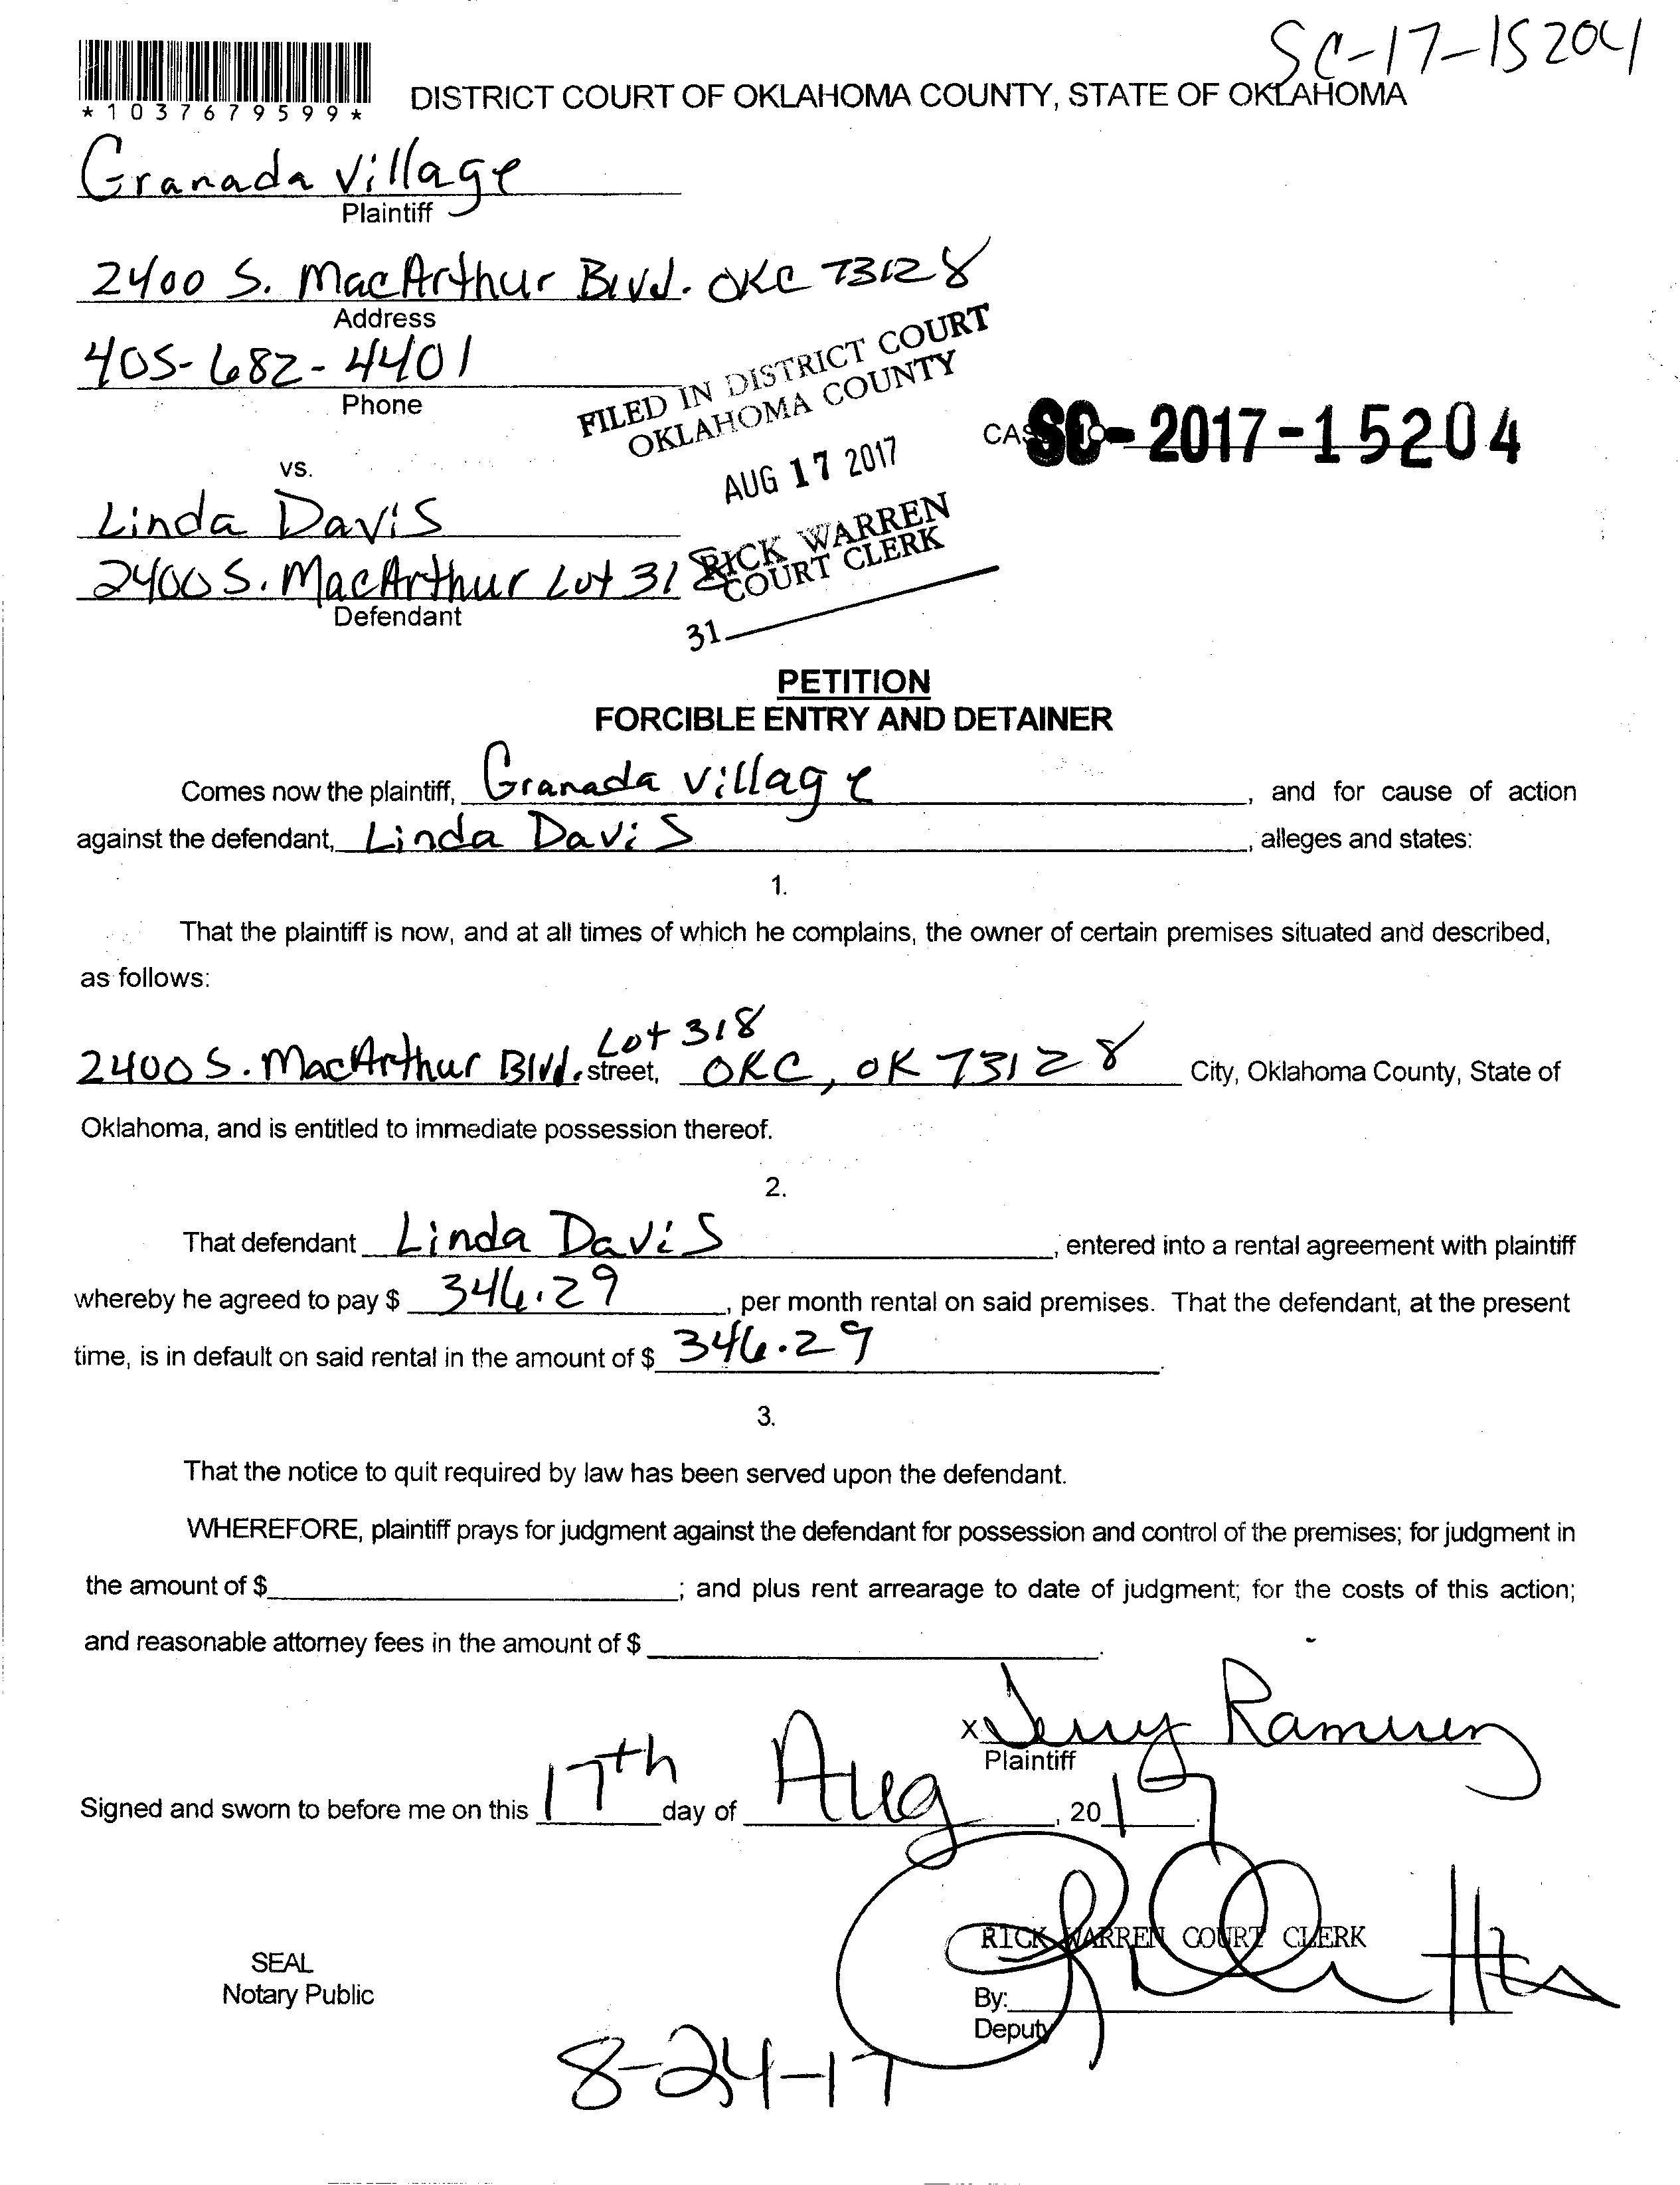 SC-17-15204
*1037679599*
DISTRICT COURT OF OKLAHOMA COUNTY, STATE OF OKLAHOMA
Granada Village
Plaintiff
2400 S. MacArthur Blvd. OKC 73128
Address
405-682-4401
Phone
FILED IN DISTRICT COURT
OKLAHOMA COUNTY
AUG 17 2017
SC-2017-15204
vs.
Linda Davis
RICK WARREN
COURT CLERK
2400 S. MacArthur Lot 318
Defendant
31
PETITION
FORCIBLE ENTRY AND DETAINER
Comes now the plaintiff, Granada Village, and for cause of action
against the defendant, Linda Davis, alleges and states:
1.
That the plaintiff is now, and at all times of which he complains, the owner of certain premises situated and described,
as follows:
Lot 318
2400 S. MacArthur Blvd. street, OKC, OK 73128 City, Oklahoma County, State of
Oklahoma, and is entitled to immediate possession thereof.
2.
That defendant Linda Davis, entered into a rental agreement with plaintiff
whereby he agreed to pay $ 346.29, per month rental on said premises. That the defendant, at the present
time, is in default on said rental in the amount of $ 346.29.
3.
That the notice to quit required by law has been served upon the defendant.
WHEREFORE, plaintiff prays for judgment against the defendant for possession and control of the premises; for judgment in
the amount of $; and plus rent arrearage to date of judgment; for the costs of this action;
and reasonable attorney fees in the amount of $.
x Jerry Ramirez
Plaintiff
Signed and sworn to before me on this 17th day of Aug, 2017.
RICK WARREN COURT CLERK
SEAL
Notary Public
By:
Deputy
8-24-17